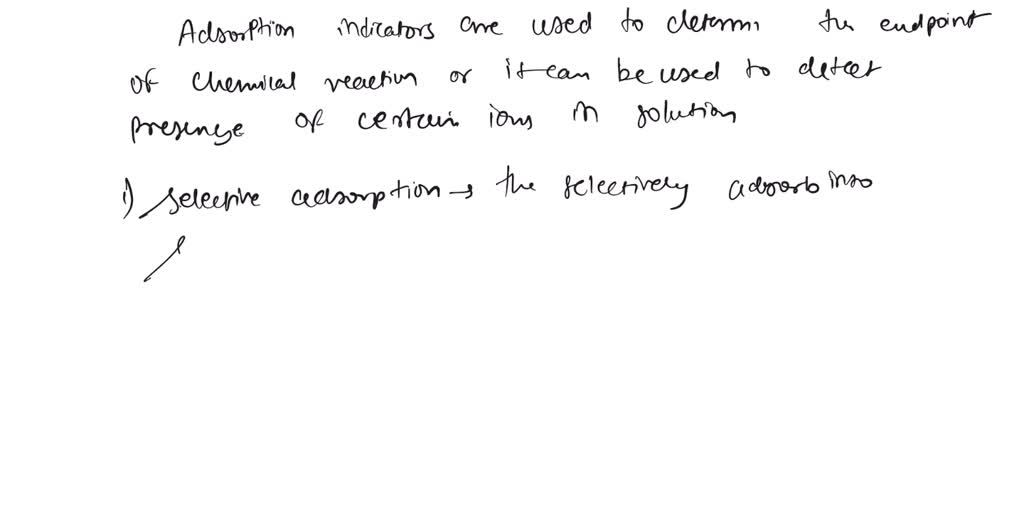 Adsorption indicators are used to determ the endpoint
of chemical reaction or it can be used to detect
presence of certain ions in solution
1) selective adsorption → the selectively adsorb